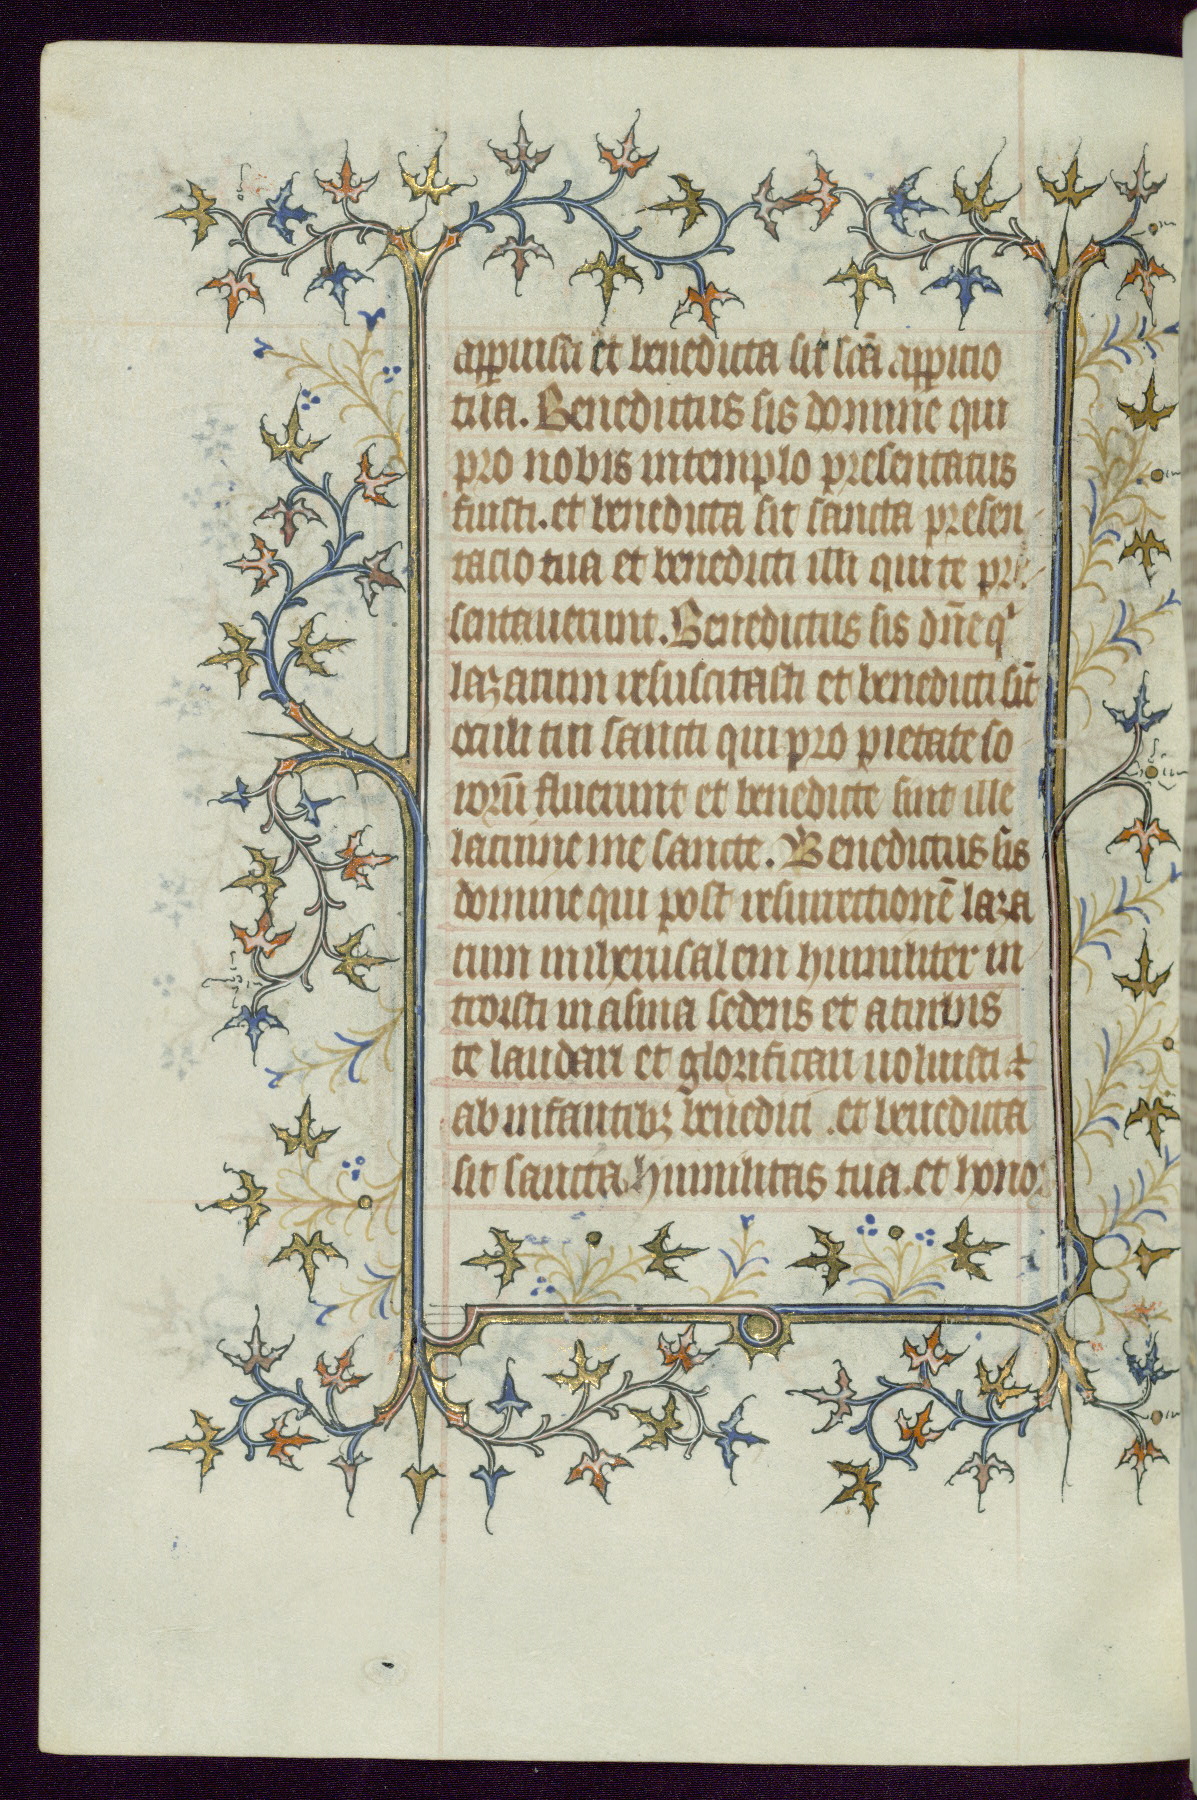 appuisti et benedicta sit scā appicio
tua. Benedictus sis domine qui
pro nobis intemplo presentatus
fuisti. et benedicta sit sancta presen
tacio tua et benedicti illi qui te pre
sentauerunt. Benedictus sis dñe qⁱ
lazarum resuscitasti et benedicti sīt
oculi tui sancti qui pro pietate so
rorū fluerunt et benedicte sint ille
lacrime sancte. Benedictus sis
domine qui post resurrectionē laza
rum in iherusalem humiliter in
troisti in asina sedens et a turbis
te laudari et glorificari uoluisti ⁊
ab infantibꝫ benedici. et benedicta
sit sancta humilitas tua. et hono